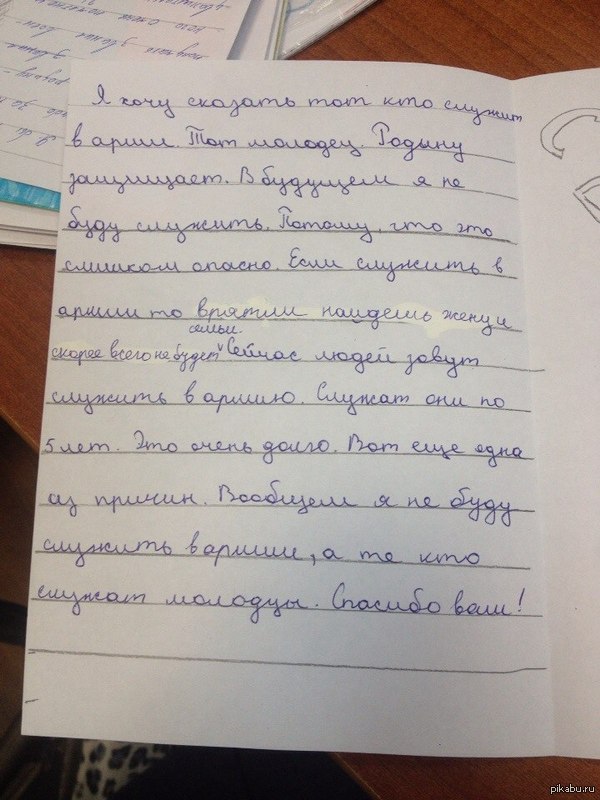 Я хочу сказать тот кто служит
в армии. Тот молодец. Родину
защищает. В будущем я не
буду служить. Потому, что это
слишком опасно. Если служить в
армии то врятли найдешь жену и
скорее всего не будет семьи. Сейчас людей зовут
служить в армию. Служат они по
5 лет. Это очень долго. Вот еще одна
из причин. Вообщем я не буду
служить в армии, а те кто
служат молодцы. Спасибо вам!
pikabu.ru